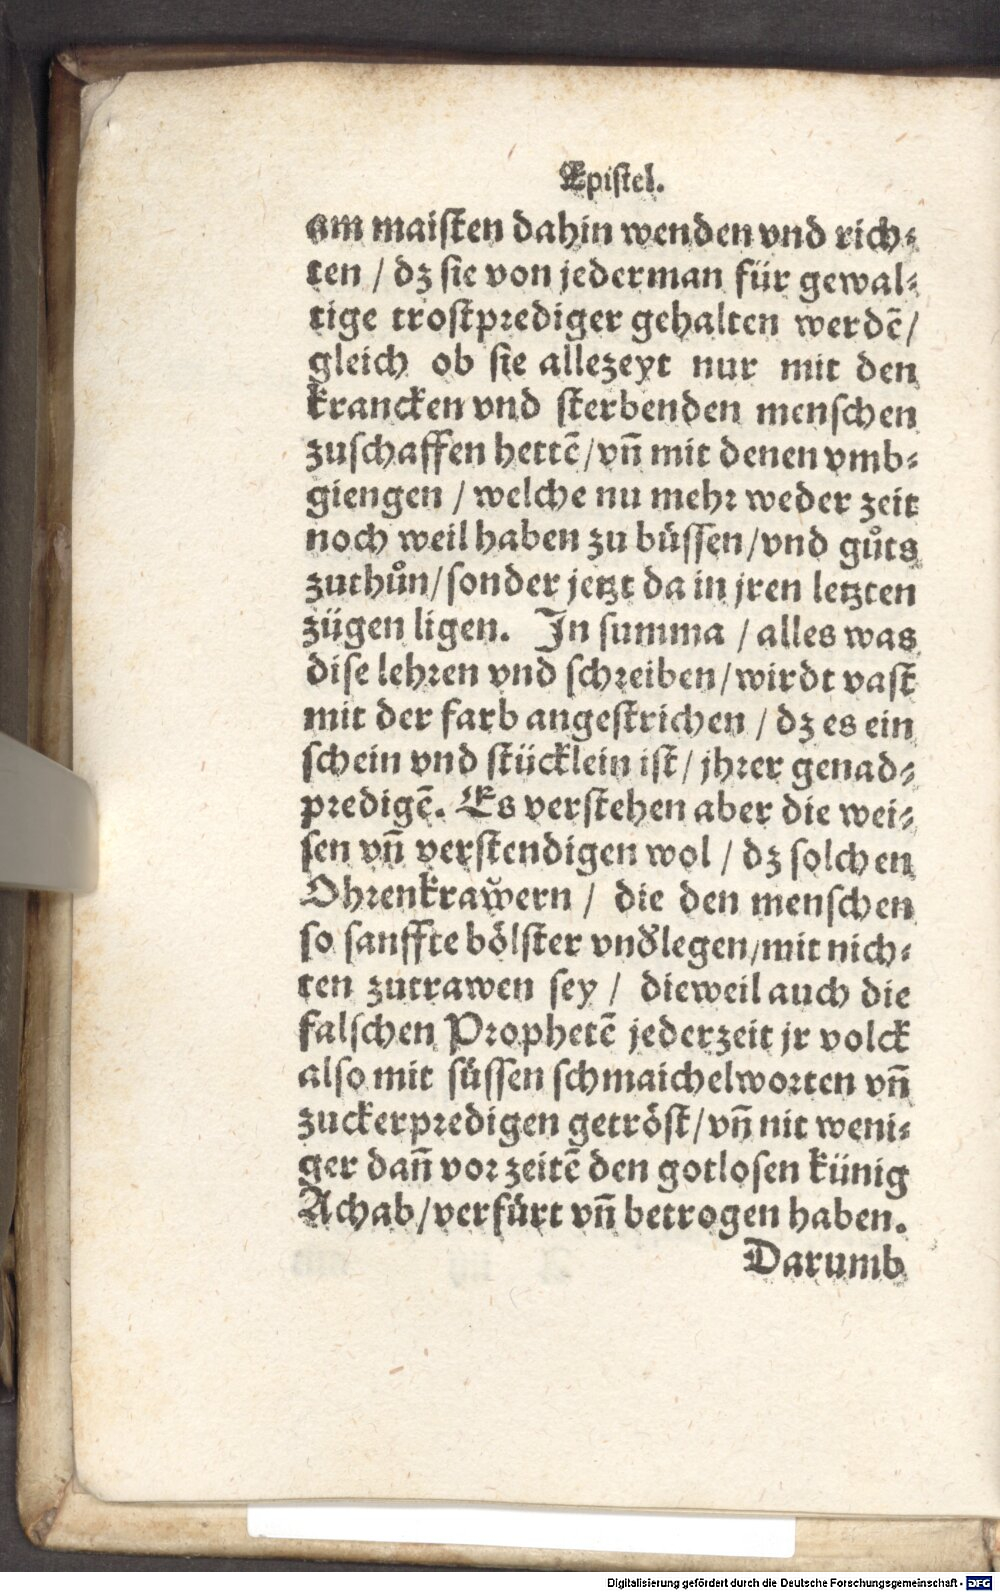 Epistel.
am maisten dahin wenden vnd rich⸗
ten / dz sie von jederman für gewal⸗
tige trostprediger gehalten werdē/
gleich ob sie allezeyt nur mit den
krancken vnd sterbenden menschen
zuschaffen hettē/vñ mit denen vmb⸗
giengen / welche nu mehr weder zeit
noch weil haben zu büssen/vnd gůts
zuthůn/sonder jetzt da in jren letzten
zügen ligen. In summa / alles was
dise lehren vnd schreiben/wirdt vast
mit der farb angestrichen / dz es ein
schein vnd stücklein ist/ jhrer genad⸗
predigē. Es verstehen aber die wei⸗
sen vñ verstendigen wol / dz solchen
Ohrenkraw̆ern / die den menschen
so sanffte bölster vnd̕legen/mit nich⸗
ten zutrawen sey / dieweil auch die
falschen Prophetē jederzeit jr volck
also mit süssen schmaichelworten vñ
zuckerpredigen getröst/vñ nit weni⸗
ger dañ vor zeitē den gotlosen künig
Achab/verfürt vñ betrogen haben.
Darumb
Digitalisierung gefördert durch die Deutsche Forschungsgemeinschaft - DFG